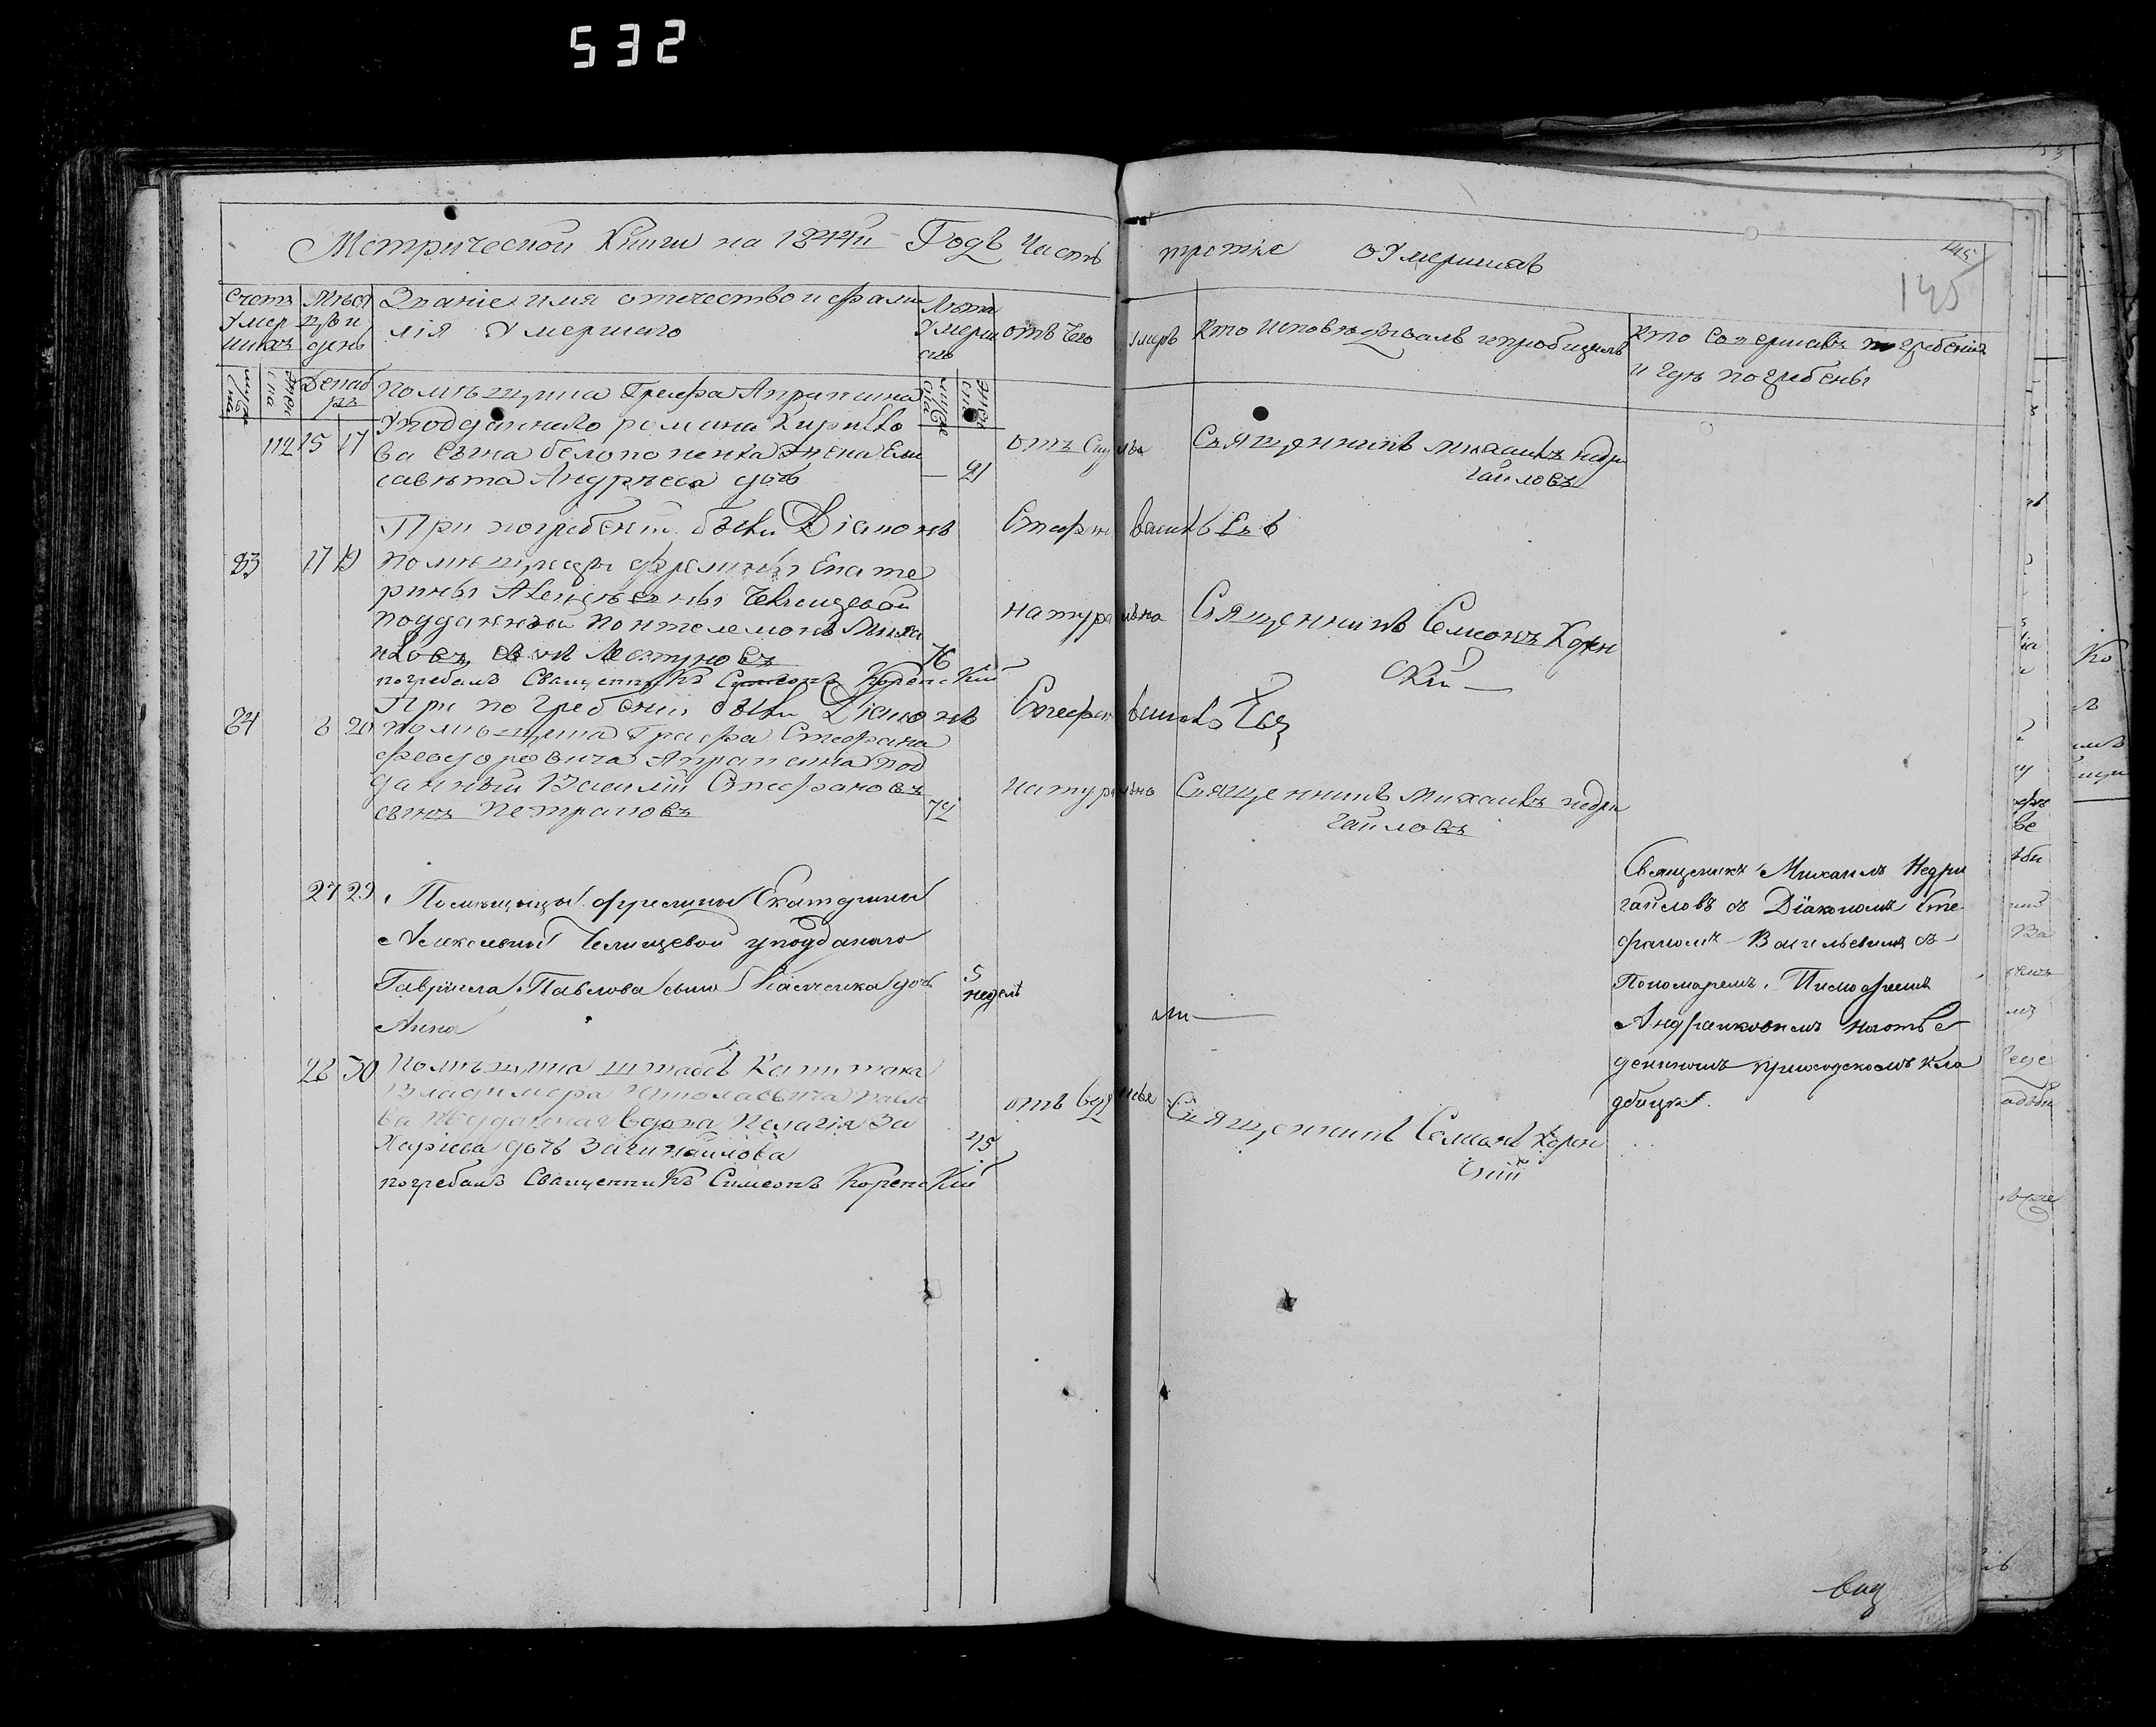 532
Метрической Книги на 1844й Годъ Часть третiя о Умершихъ
145
145
Счетъ Умер шихъ
Мѣся цъ и день
Званiе имя отчество и фами лiя Умершаго
Лѣта Умерш
отъ Чего Умеръ
Кто Исповѣдывалъ и прiобщалъ
Кто Совершалъ погребенiя и Гдѣ погребены
Декаб рь
помѣщика Графа Апраксина
112 15 17
Уподданнаго романа Кирилло
ва сына белопопенка жена Ели
савѣта Андрѣева дочь
21
Священникъ Михаилъ недри
гайловъ
При погребенiи были Дiаконъ Стефанъ васильевъ
83 17 19
помѣщицы фрелины Екате
рины Алексѣевны Челищевой
подданный Понтелемонъ Миха
иловъ сынъ
76
натурально
Священникъ Семионъ Корен
скiй
погребалъ Священникъ Симеонъ Коренскiй
При погребенiи были Дiаконъ Стефанъ васильевъ
84 8 20
помѣщика Графа Стефана
феодоровича Апраксина под
данный Василiй Стефановъ
сынъ петраковъ
72
натурально
Священникъ Михаилъ недри
гайловъ
27 29
Помѣщицы фрелины Екатерины
Алексевны Челищевой уподданого
Гаврiила Павлова сына дочь
Анна
5 недель
Священикъ Михаилъ Недри
гайловъ съ Дiакономъ Сте
фаномъ Васильевимъ съ
Пономаремъ Тимофеемъ
на отве
денномъ приходскомъ кла
дбищи
28 30
помѣщика штабсъ Капитана
Владимера павло
ва подданная вдова Пелагiя За
харiева дочь
45
Священникъ Семионъ Корен
скiй
погребалъ Священникъ Симеонъ Коренскiй